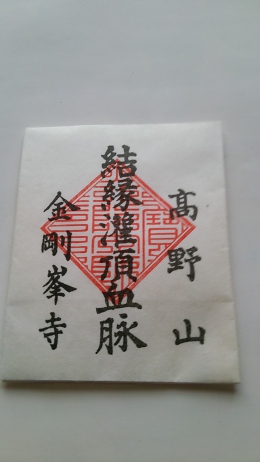 高野山
結縁灌頂血脉
金剛峯寺